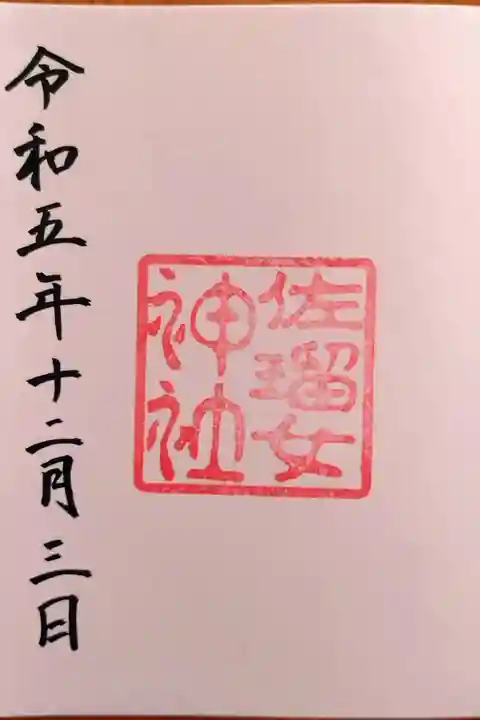 佐瑠女
神社
令和五年十二月三日